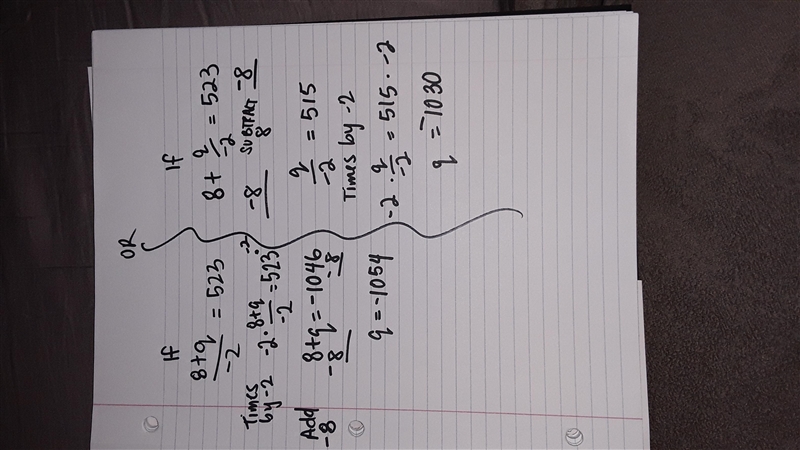 OR
If
8+q/-2 = 523
Times by -2
-2 · 8+q/-2 = 523 · -2
Add -8
8+q = -1046
-8 -8
q = -1054
If
8 + q/-2 = 523
-8 SUBTRACT 8 -8
q/-2 = 515
Times by -2
-2 · q/-2 = 515 · -2
q = -1030